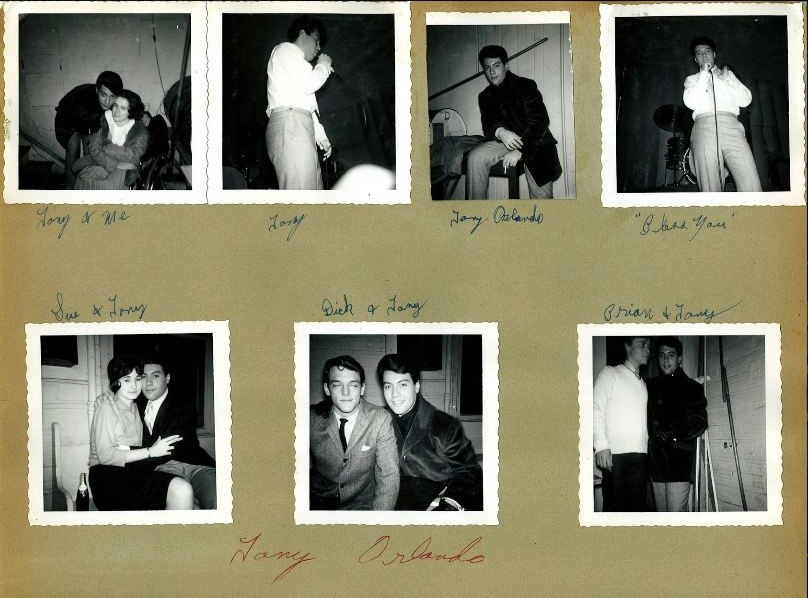 Tony & Me
Tony
Tony Orlando
"Bless You"
Sue & Tony
Dick & Tony
Brian & Tony
Tony Orlando